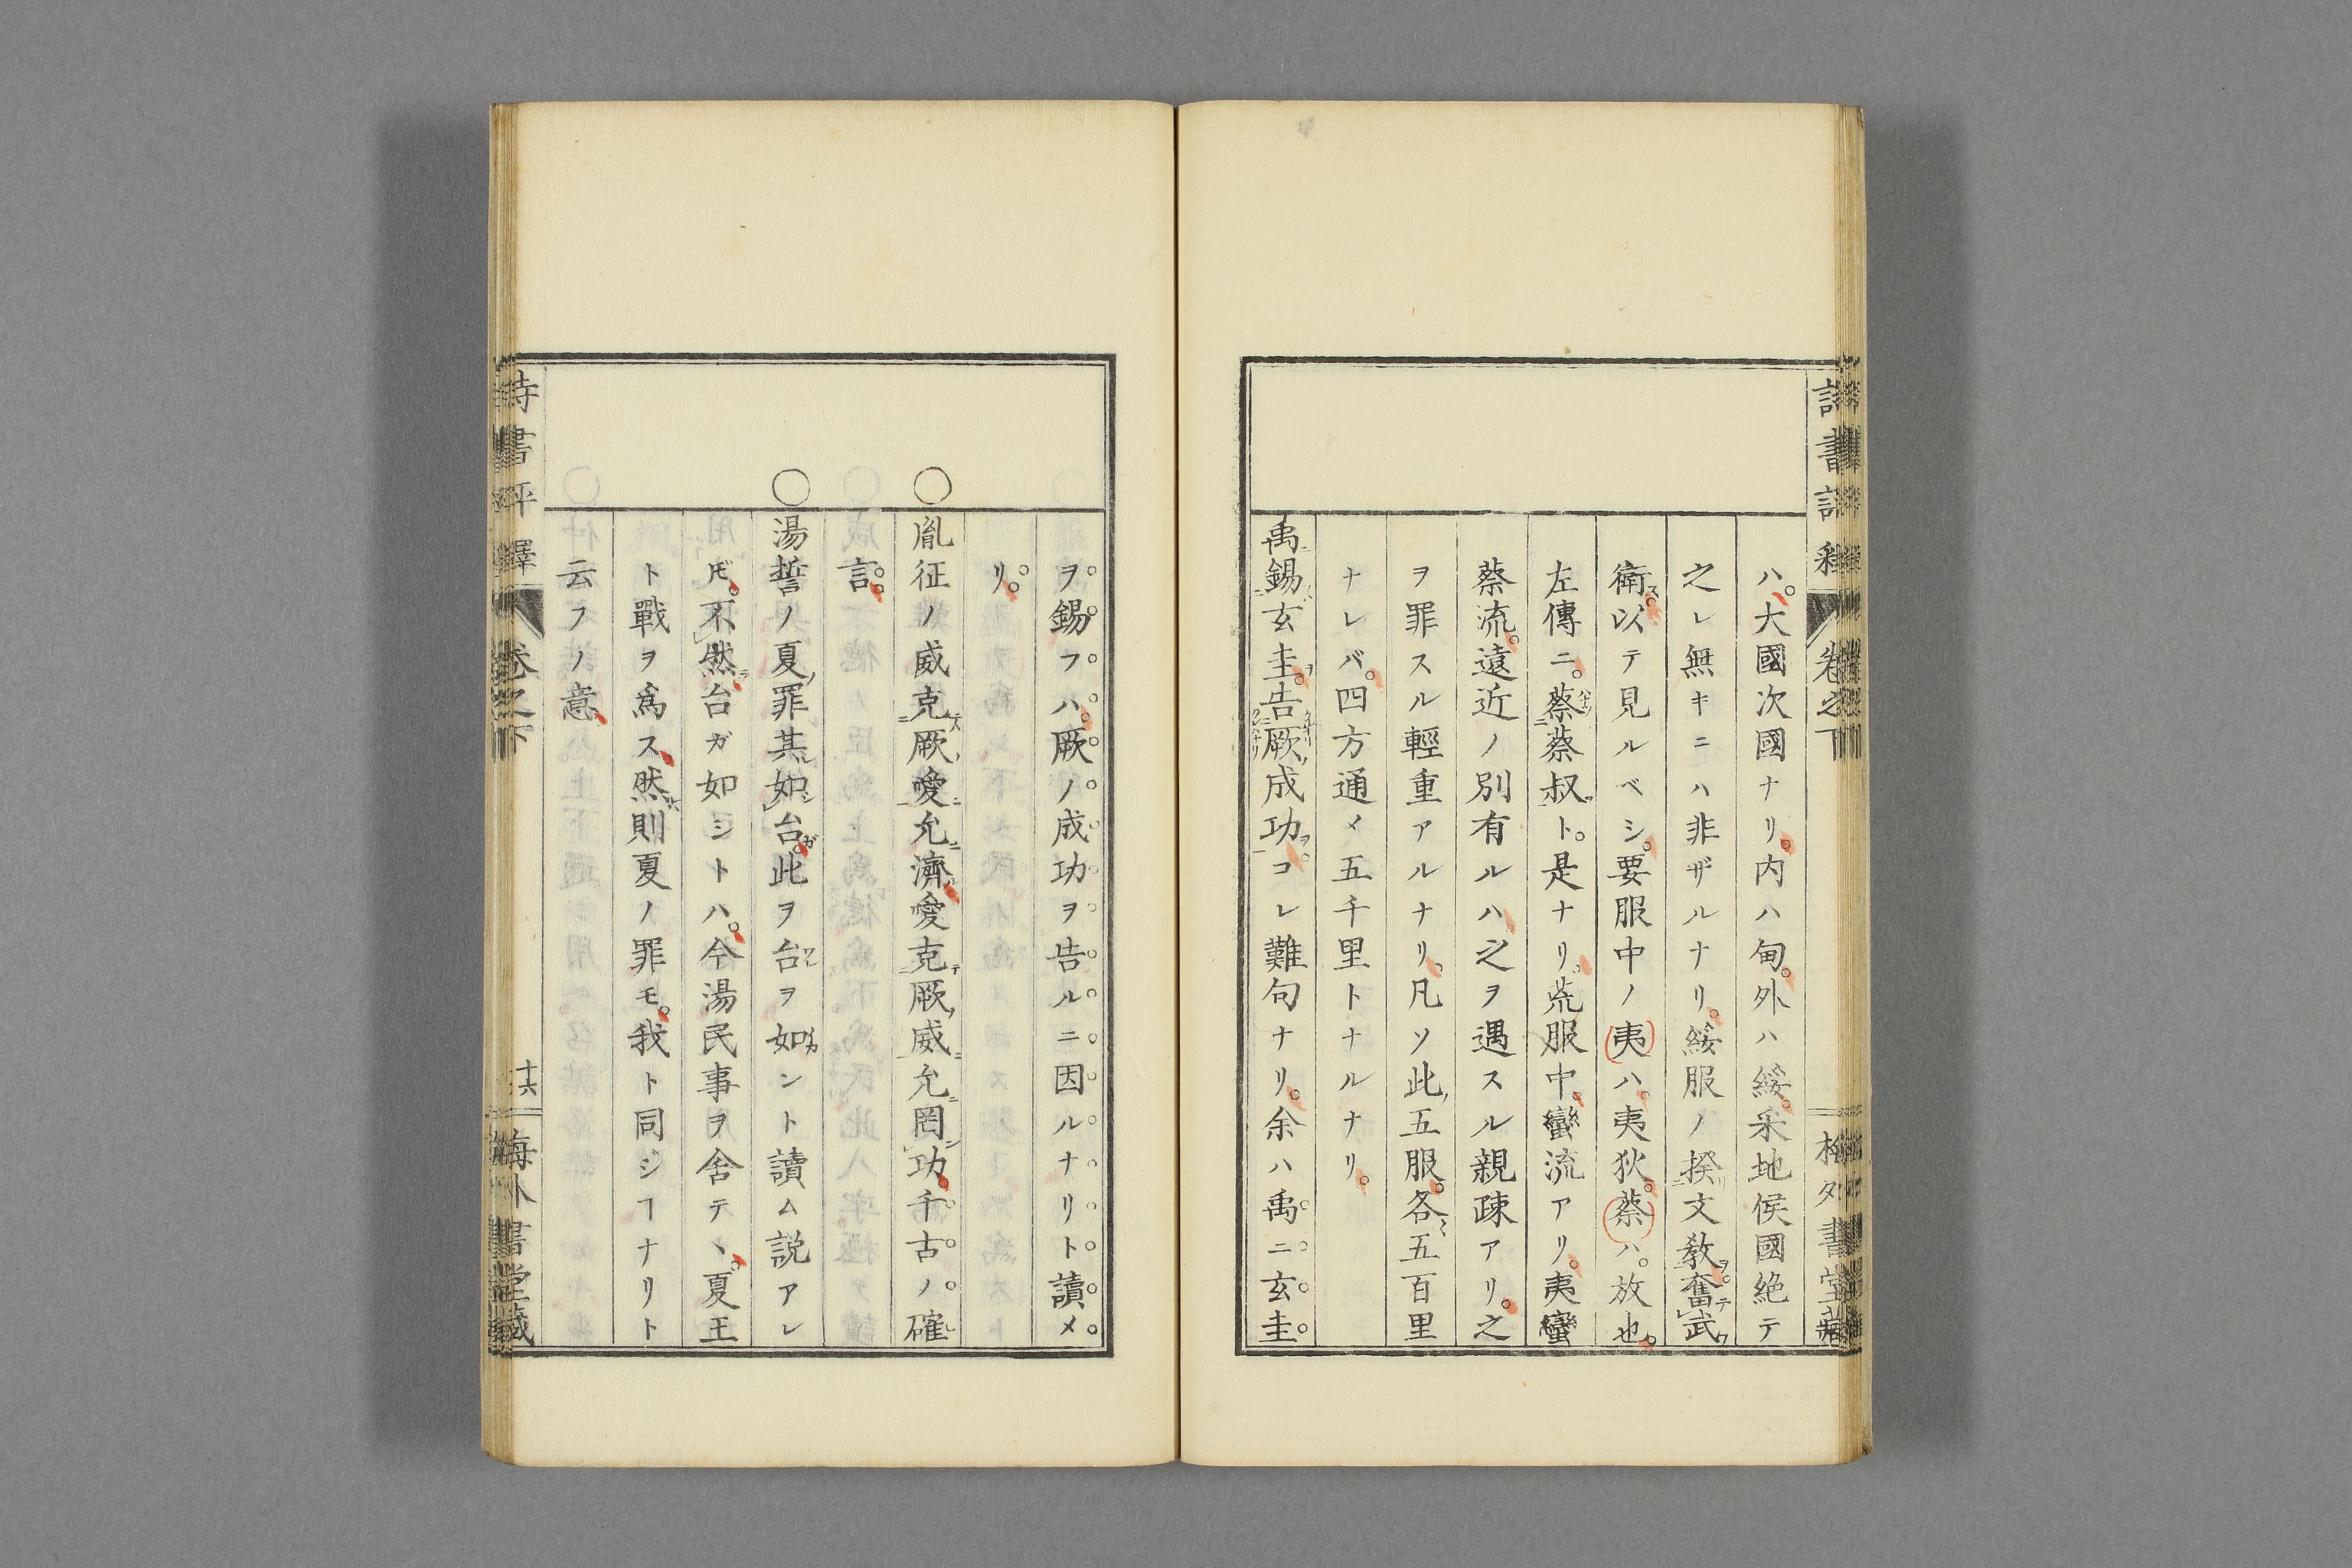 ハ。大國次國ナリ。内ハ甸。外ハ綏。采地侯國絶テ
之レ無キニハ非ザルナリ。綏服ノ揆文教奮武
衛。以テ見ルベシ。要服中ノ夷ハ。夷狄。蔡ハ。放也。
左傳ニ。蔡蔡叔ト。是ナリ。荒服中。蠻流アリ。夷蠻
蔡流。遠近ノ別有ルハ之ヲ遇スル親疎アリ。之
ヲ罪スル輕重アルナリ。凡ソ此五服。各五百里
ナレバ。四方通メ五千里トナルナリ。
禹錫玄圭。告厥成功。コレ難句ナリ。余ハ禹ニ玄圭
ヲ錫フハ。厥ノ成功ヲ告ルニ因ルナリト讀メ
リ。
○胤征ノ威克厥愛允濟愛克厥威允罔功千古ノ確
言。
○湯誓ノ夏罪其如台。此ヲ台ヲ如ント讀ム説アレ
𪜈。不然台ガ如シトハ。今湯民事ヲ舍テヽ。夏王
ト戰ヲ爲ス。然則夏ノ罪モ。我ト同ジヿナリト
云フノ意
詩書評釋 卷之下 十六 梅外書堂藏